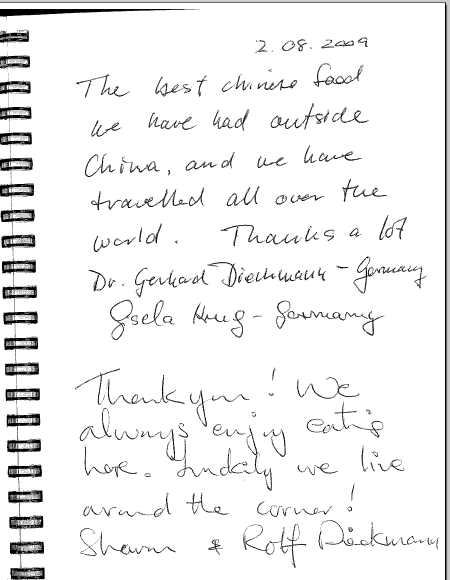 2.08.2009
The best chinese food
we have had outside
China, and we have
travelled all over the
world. Thanks a lot
Dr. Gerhard Dieckmann - Germany
Gisela Krug - Germany
Thank you! We
always enjoy eating
here. Luckily we live
around the corner!
& Rolf Dieckmann